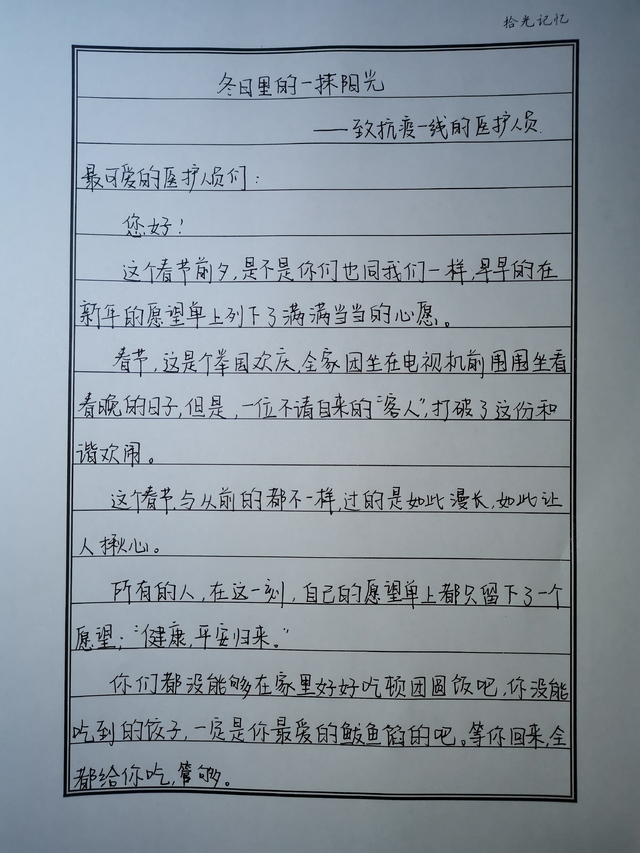 拾光记忆
冬日里的一抹阳光
——致抗疫一线的医护人员
最可爱的医护人员们：
您好！
这个春节前夕，是不是你们也同我们一样，早早的在
新年的愿望单上列下了满满当当的心愿。
春节，这是个举国欢庆，全家团坐在电视机前围围坐看
春晚的日子，但是，一位不请自来的“客人”，打破了这份和
谐欢闹。
这个春节，与从前的都不一样，过的是如此漫长，如此让
人揪心。
所有的人，在这一刻，自己的愿望单上都只留下了一个
愿望；“健康，平安归来。”
你们都没能够在家里好好吃顿团圆饭吧，你没能
吃到的饺子，一定是你最爱的鲅鱼馅的吧。等你回来，全
都给你吃，管够。